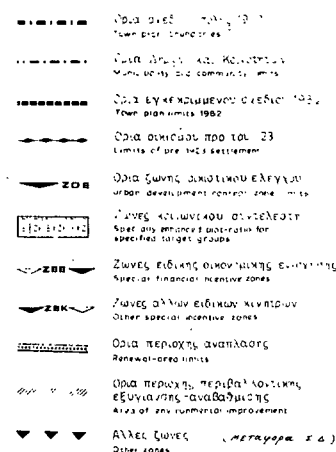 Όρια
Town plan boundaries
Όρια και Κοινοτήτων
Municipality and community limits
Όρια εγκεκριμένου σχεδίου 1982
Town plan limits 1982
Όρια οικισμού προ του 23
Limits of pre 1923 settlement
ΖΟΕ Όρια ζώνης οικιστικού ελέγχου
urban development control zone limits
Ζώνες κοινωνικού συντελεστή
Specially enhanced plot-ratio for
specified target groups
Ζώνες ειδικής οικονομικής ενίσχυσης
Special financial incentive zones
ΖΒΚ Ζώνες άλλων ειδικών κινήτρων
Other special incentive zones
Όρια περιοχής ανάπλασης
Renewal-area limits
Όρια περιοχής περιβαλλοντικής
εξυγίανσης-αναβάθμισης
Area of environmental improvement
Άλλες ζώνες (μεταφορά Σ Δ)
Other zones